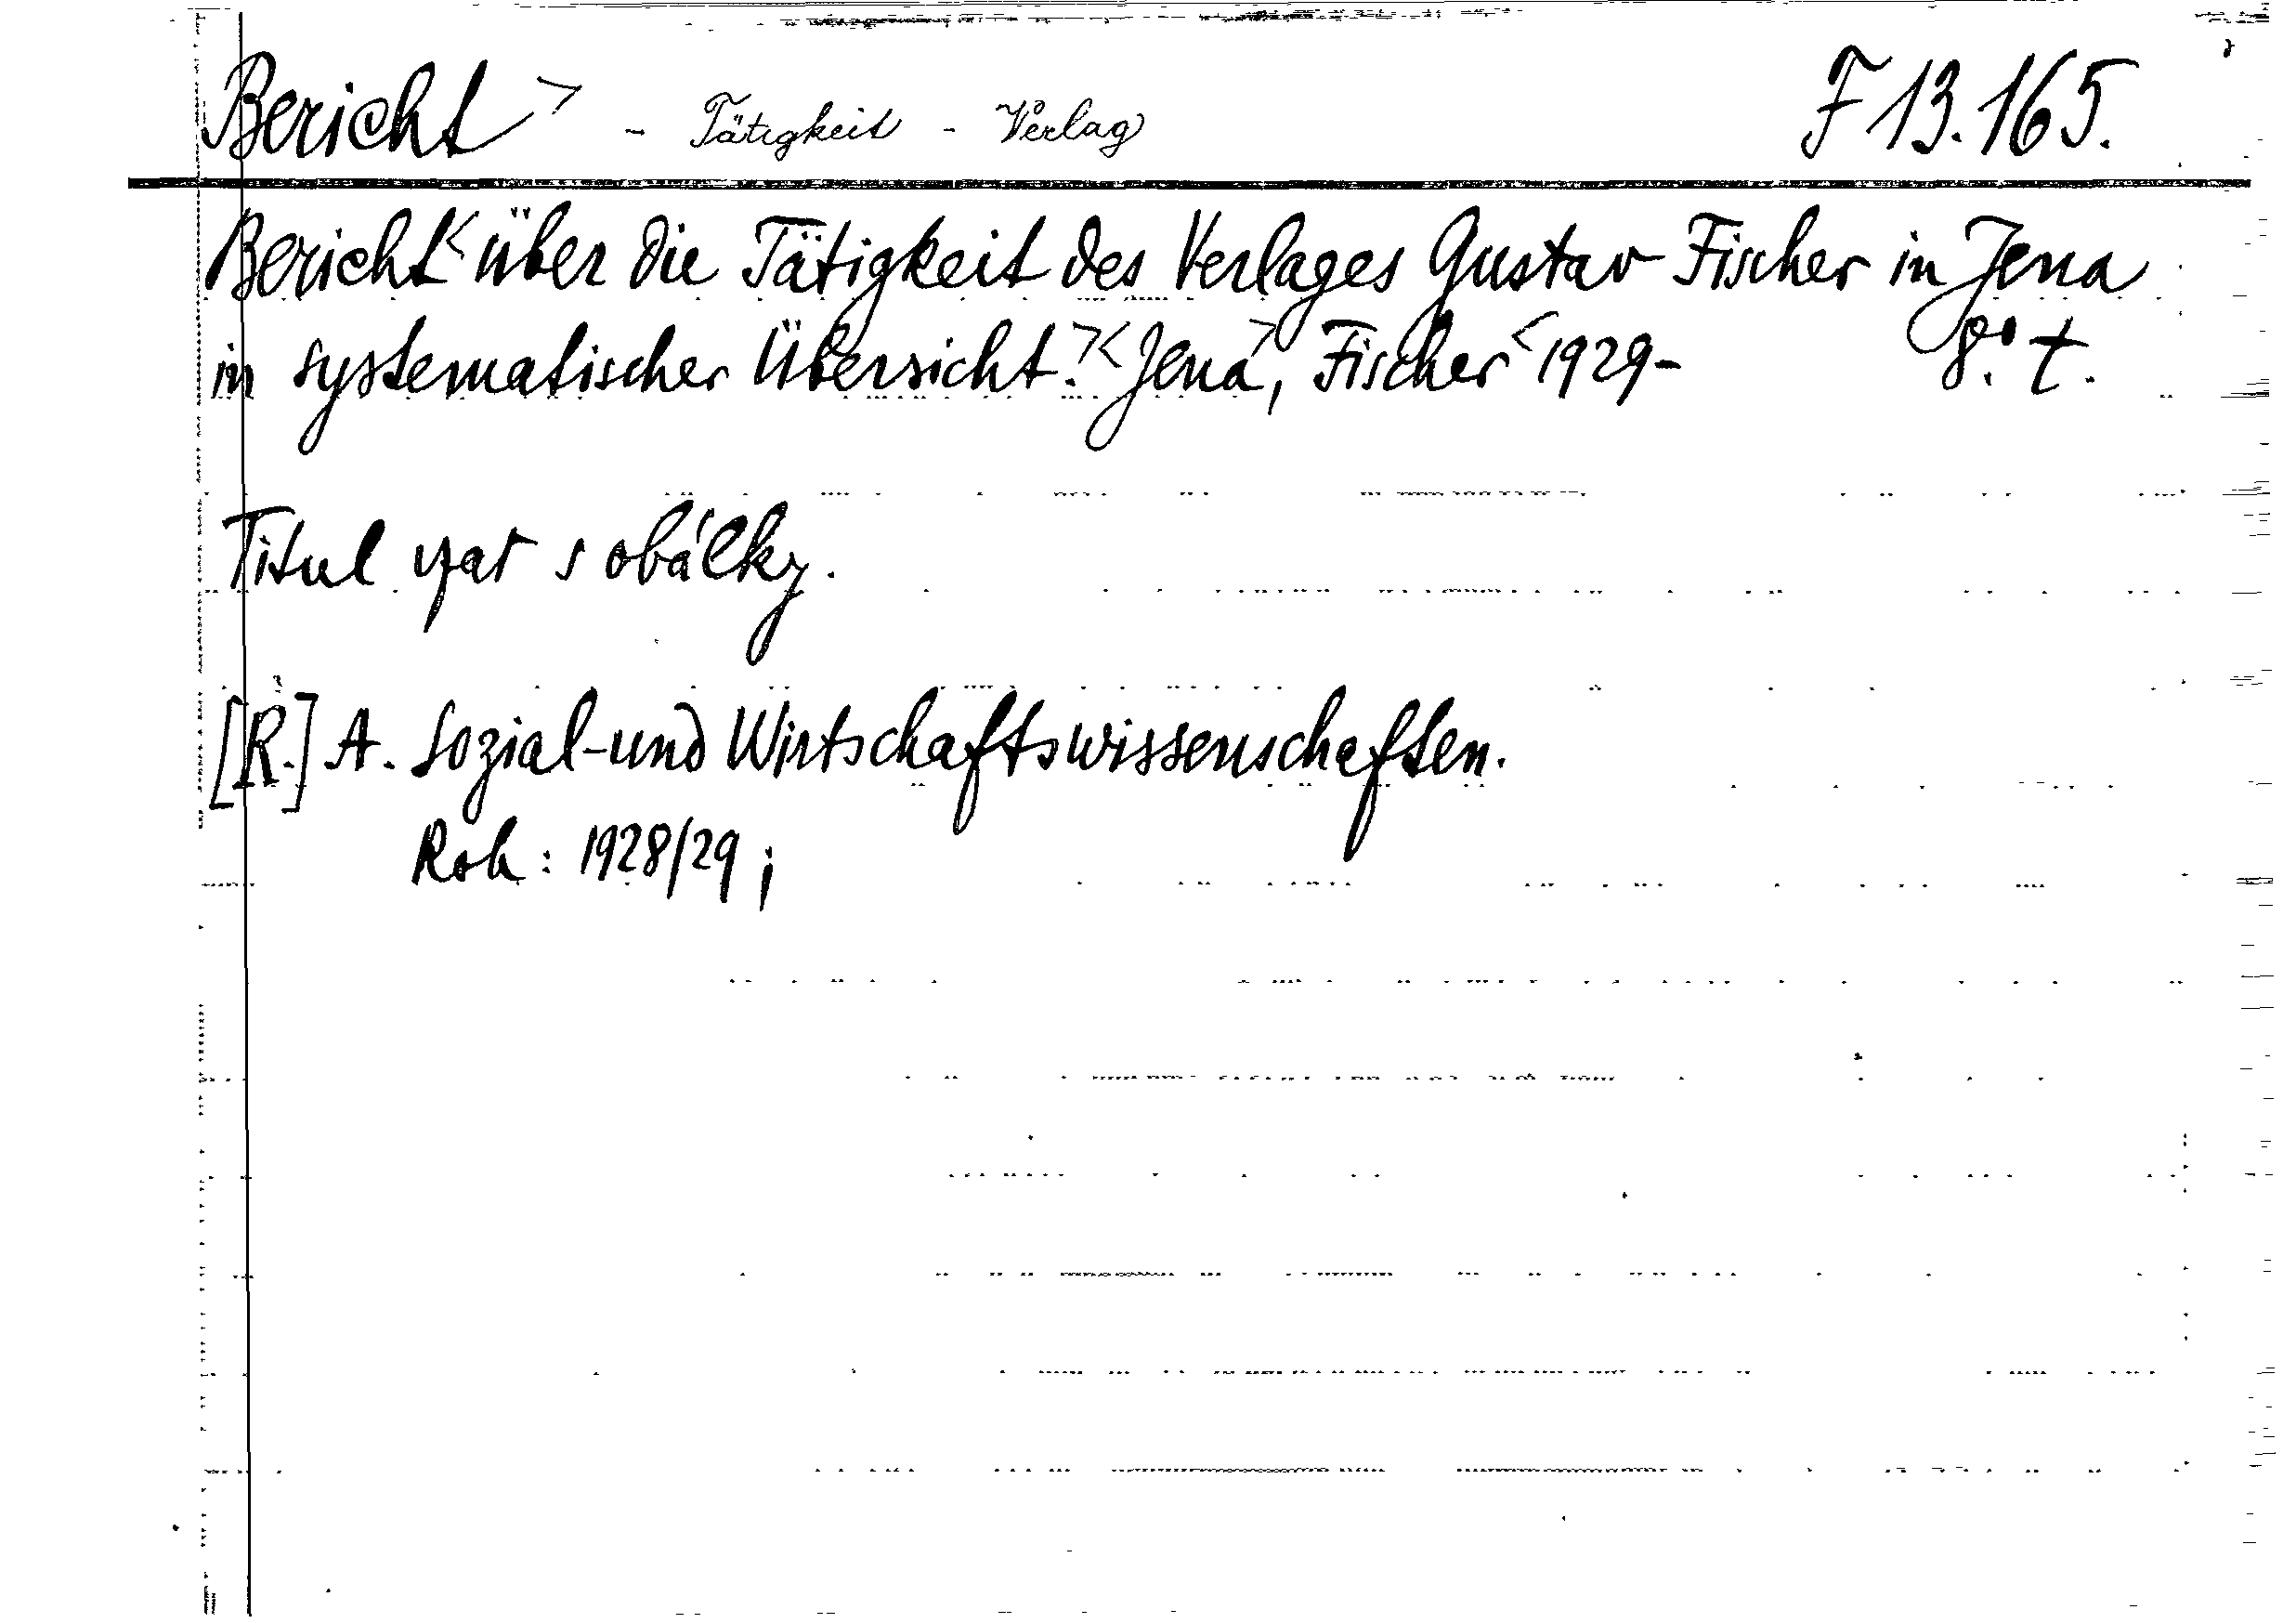 Bericht > - Tätigkeit - Verlag F 13.165.
Bericht < über die Tätigkeit des Verlages Gustav Fischer in Jena
in systematischer Übersicht. >< Jena >, Fischer < 1929- 8° t.
Titul s obálky.
[R.] A. Sozial-und Wirtschaftswissenschaften.
Rok : 1928/29 ;